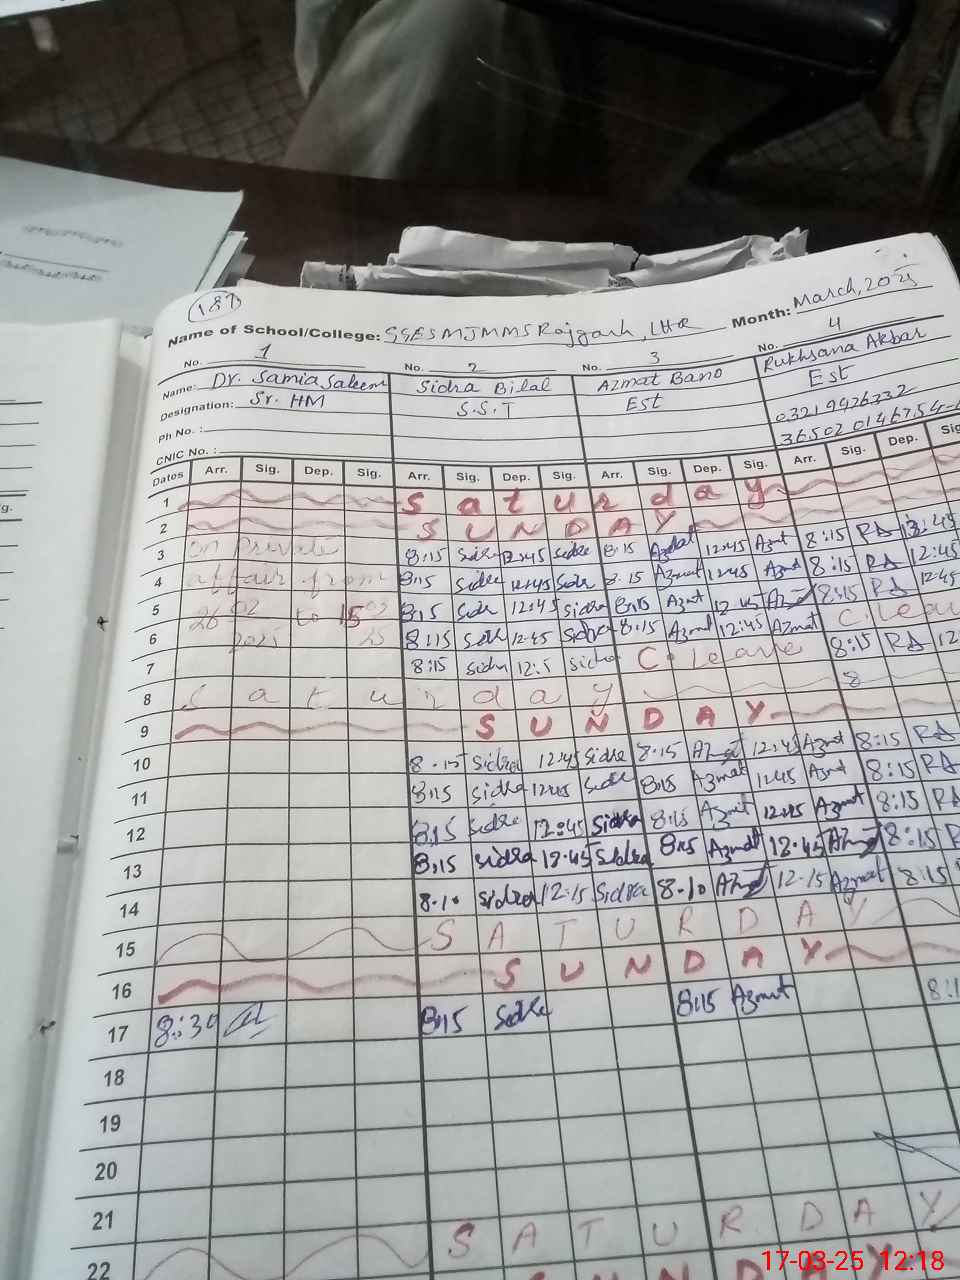 187
Name of School/College: GGES MJMMS Rajgarh, LHR Month: March, 2025
No. 1 No. 2 No. 3 No. 4
Name: Dr. Samia Saleem Sidra Bilal Azmat Bano Rukhsana Akbar
Designation: Sr. HM S.S.T Est Est
Ph No.: 0321 9426332
CNIC No.:
Dates Arr. Sig. Dep. Sig. Arr. Sig. Dep. Sig. Arr. Sig. Dep. Sig. Arr. Sig. Dep.
1 Saturday
2 SUNDAY
3 on Private 8:15 Sidra 12:45 Sidra 8:15 Azmat 12:45 Azmat 8:15 RA 12:45
4 affair from 8:15 Sidra 12:45 Sidra 8:15 Azmat 12:45 Azmat 8:15 RA 12:45
5 26 02 to 15 03 8:15 Sidra 12:45 Sidra 8:15 Azmat 12:45 8:15 RA 12:45
6 2025 25 8:15 Sidra 12:45 Sidra 8:15 Azmat 12:45 Azmat C. Leav
7 8:15 Sidra 12:5 Sidra C. Leave 8:15 RA 12
8 Saturday 8
9 SUNDAY
10 8.15 Sidra 12:45 Sidra 8.15 Azmat 12:45 Azmat 8:15 RA
11 8:15 Sidra 12:45 Sidra 8:15 Azmat 12:45 Azmat 8:15 RA
12 8:15 Sidra 12:45 Sidra 8:15 Azmat 12:45 Azmat 8:15 RA
13 8:15 Sidra 12.45 Sidra 8:15 Azmat 12.45 8:15
14 8.10 Sidra 12.15 Sidra 8.10 12.15 Azmat 8:15
15 SATURDAY
16 SUNDAY
17 8:30 8:15 Sidra 8:15 Azmat 8:1
18
19
20
21 SATURDAY
22 NDAY
17-03-25 12:18